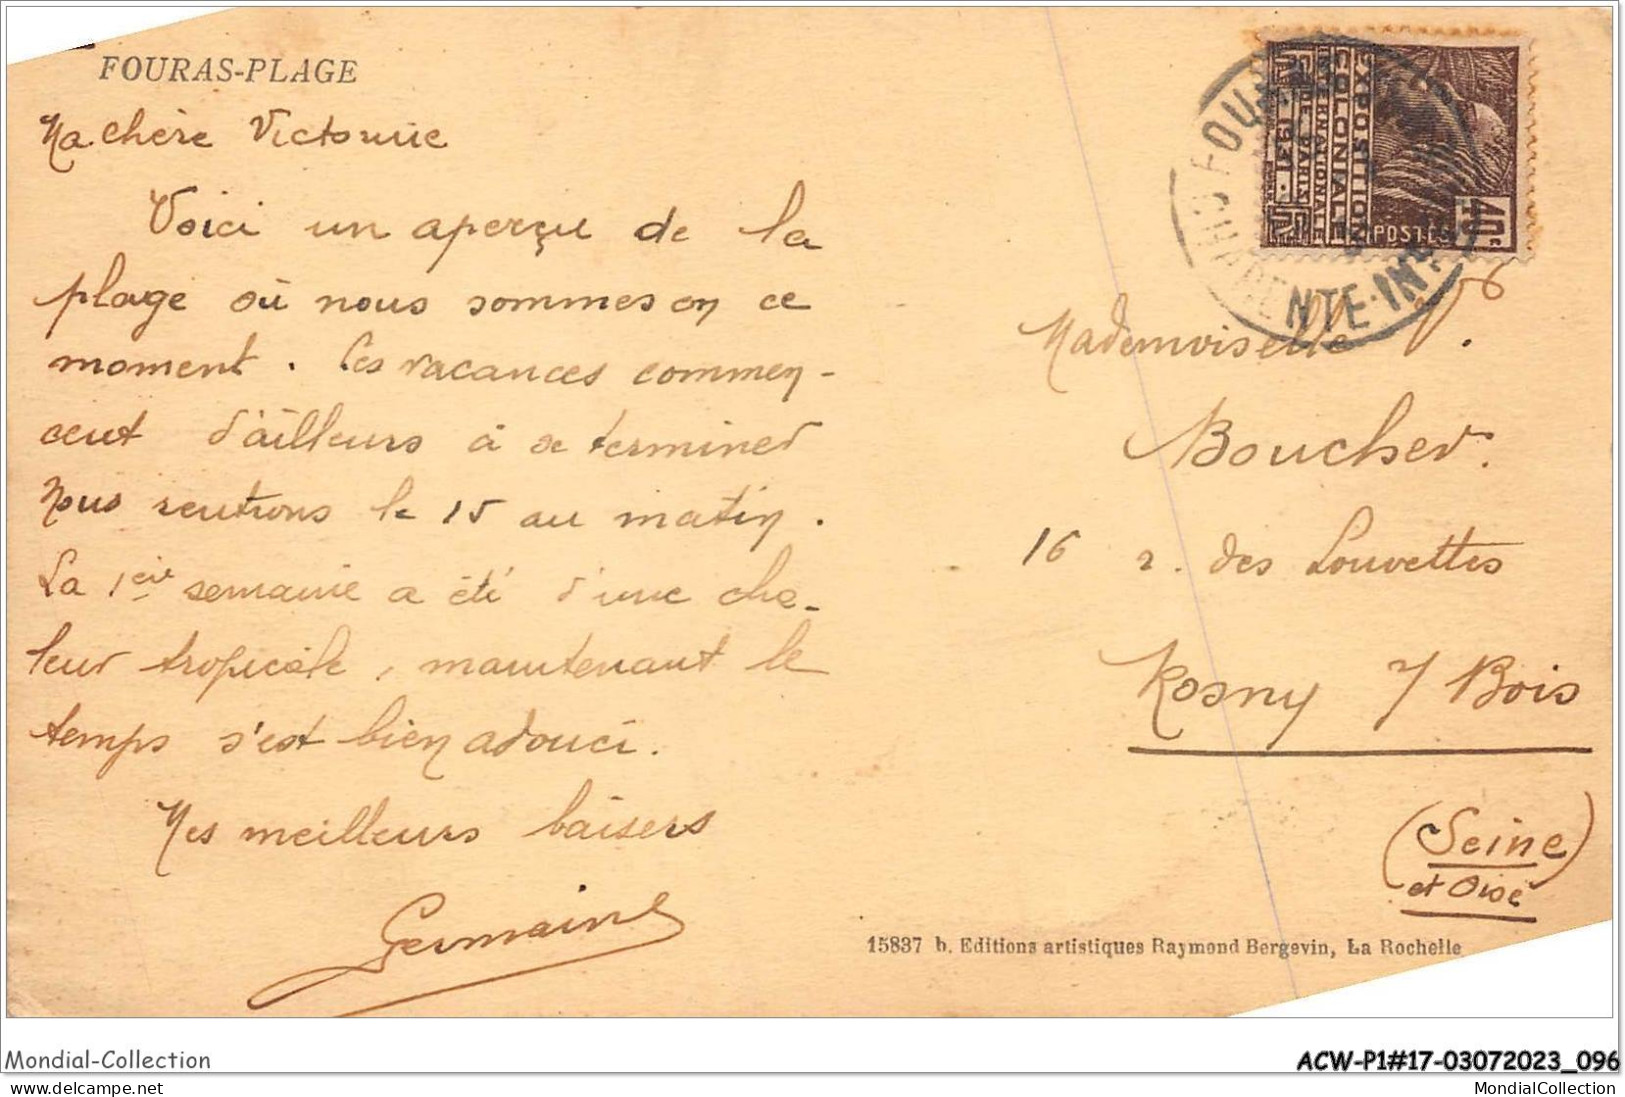 FOURAS-PLAGE
Ma chère Victorine
Voici un aperçu de la
plage où nous sommes en ce
moment. Les vacances commen-
cent d'ailleurs à se terminer
Nous rentrons le 15 au matin.
La 1ère semaine a été d'une cha-
leur tropicale, maintenant le
temps s'est bien adouci.
Mes meilleurs baisers
Germaine
EXPOSITION
COLONIALE
INTERNATIONALE
PARIS 1931
40c
POSTES
FOURAS
CHARENTE-INFRE
Mademoiselle V.
Boucher.
16 r. des Louvettes
Rosny s/ Bois
(Seine)
et Oise
15837 b. Editions artistiques Raymond Bergevin, La Rochelle
Mondial-Collection
ACW-P1#17-03072023_096
delcampe.net
MondialCollection